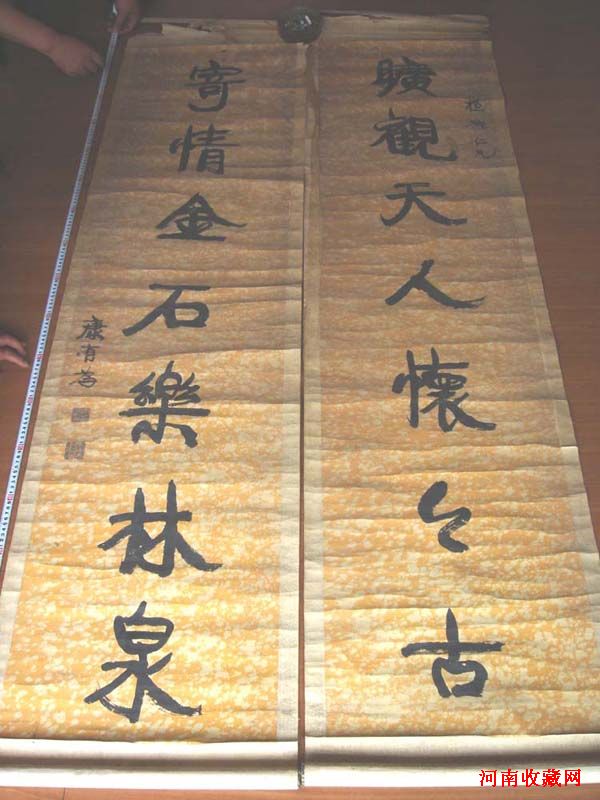 曠觀天人懷今古
仁兄
寄情金石樂林泉
康有為
河南收藏网